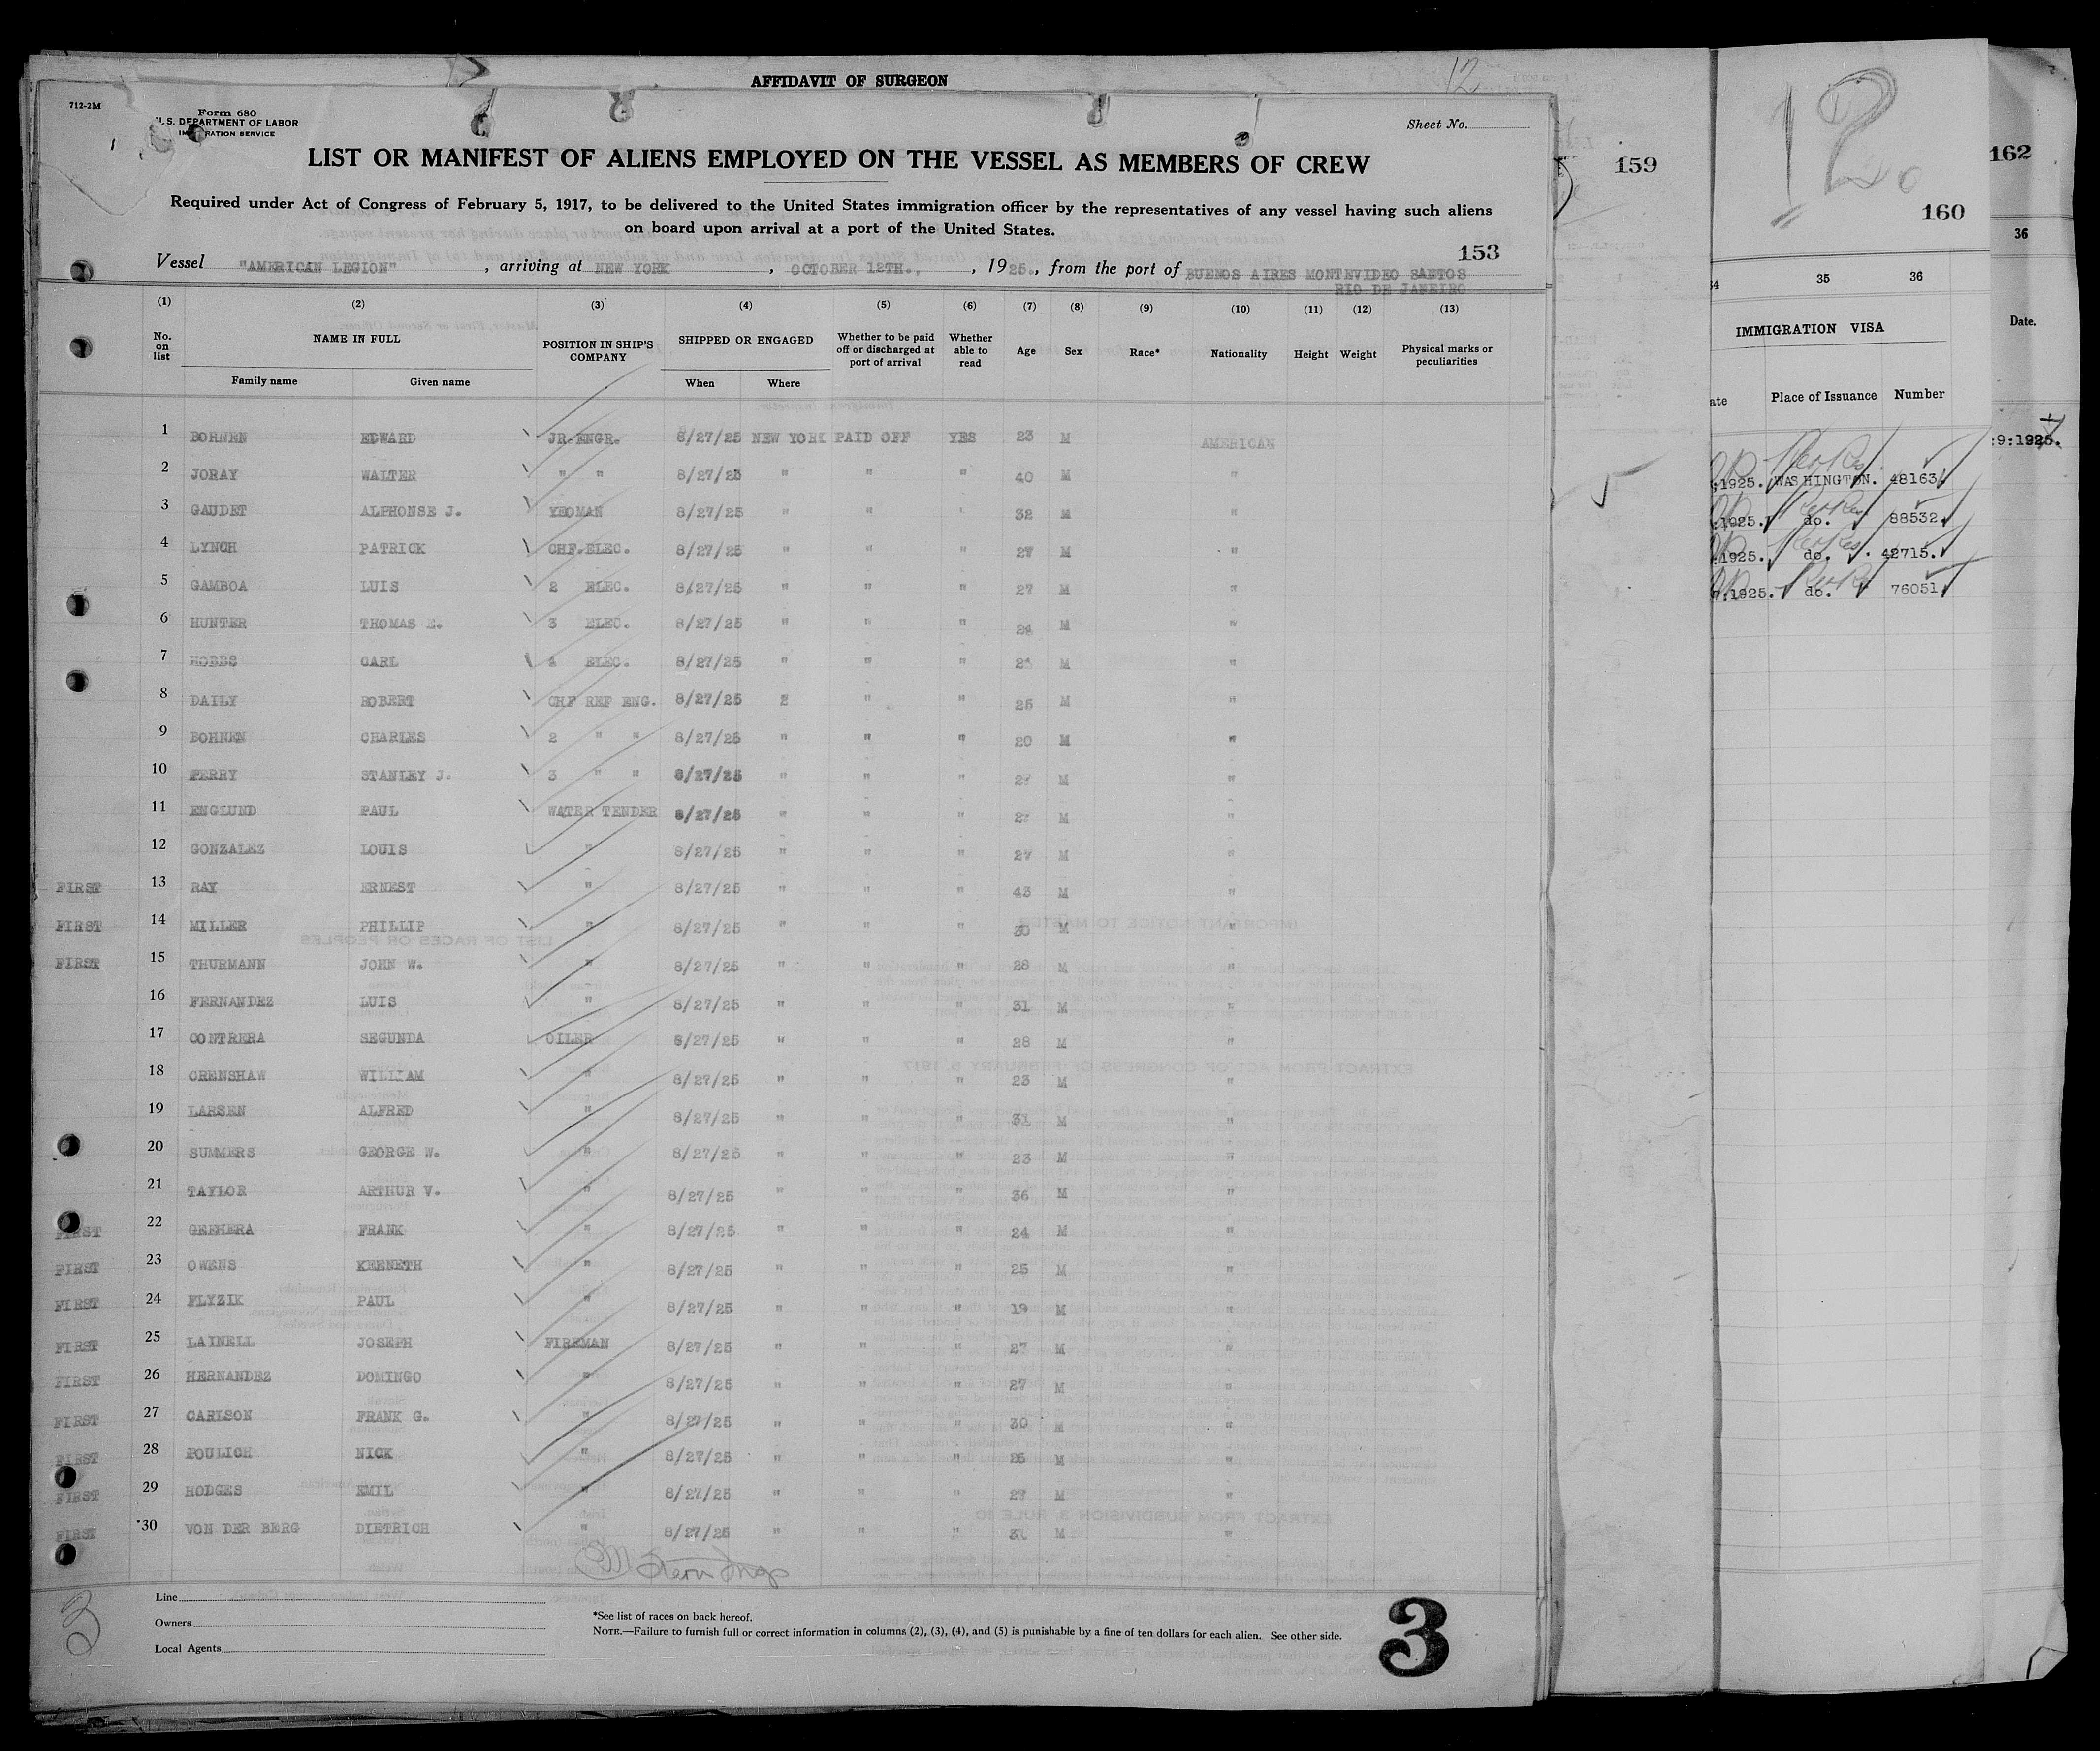 AFFIDAVIT OF SURGEON
12
712-2M
Form 680
U. S. DEPARTMENT OF LABOR
IMMIGRATION SERVICE
Sheet No.
LIST OR MANIFEST OF ALIENS EMPLOYED ON THE VESSEL AS MEMBERS OF CREW
Required under Act of Congress of February 5, 1917, to be delivered to the United States immigration officer by the representatives of any vessel having such aliens
on board upon arrival at a port of the United States.
153
Vessel "AMERICAN LEGION", arriving at NEW YORK, OCTOBER 12TH., , 1925., from the port of BUENOS AIRES MONTEVIDEO SANTOS
RIO DE JANEIRO
(1) (2) (3) (4) (5) (6) (7) (8) (9) (10) (11) (12) (13)
No. on list NAME IN FULL POSITION IN SHIP'S COMPANY SHIPPED OR ENGAGED Whether to be paid off or discharged at port of arrival Whether able to read Age Sex Race* Nationality Height Weight Physical marks or peculiarities
Family name Given name When Where
1 BOHNEN EDWARD JR.ENGR. 8/27/25 NEW YORK PAID OFF YES 23 M AMERICAN
2 JORAY WALTER " " 8/27/25 " " " 40 M "
3 GAUDET ALPHONSE J. YEOMAN 8/27/25 " " " 32 M "
4 LYNCH PATRICK CHF.ELEC. 8/27/25 " " " 27 M "
5 GAMBOA LUIS 2 ELEC. 8/27/25 " " " 27 M "
6 HUNTER THOMAS E. 3 ELEC. 8/27/25 " " " 24 M "
7 HOBBS CARL 4 ELEC. 8/27/25 " " " M "
8 DAILY ROBERT CHF REF ENG. 8/27/25 2 " " 25 M "
9 BOHNEN CHARLES 2 " " 8/27/25 " " " 20 M "
10 PERRY STANLEY J. 3 " " 8/27/25 " " " M "
11 ENGLUND PAUL WATER TENDER 8/27/25 " " " M "
12 GONZALEZ LOUIS " 8/27/25 " " " 27 M "
FIRST 13 RAY ERNEST " 8/27/25 " " " 43 M "
FIRST 14 MILLER PHILLIP " 8/27/25 " " " 30 M "
FIRST 15 THURMANN JOHN W. " 8/27/25 " " " 28 M "
16 FERNANDEZ LUIS " 8/27/25 " " " 31 M "
17 CONTRERA SEGUNDA OILER 8/27/25 " " " 28 M "
18 CRENSHAW WILLIAM " 8/27/25 " " " 23 M "
19 LARSEN ALFRED " 8/27/25 " " " 31 M "
20 SUMMERS GEORGE W. " 8/27/25 " " " 23 M "
21 TAYLOR ARTHUR V. " 8/27/25 " " " 36 M "
FIRST 22 GEEHERA FRANK " 8/27/25 " " " 24 M "
FIRST 23 OWENS KEENETH " 8/27/25 " " " 25 M "
FIRST 24 FLYZIK PAUL " 8/27/25 " " " 19 M "
FIRST 25 LAINELL JOSEPH FIREMAN 8/27/25 " " " 27 M "
FIRST 26 HERNANDEZ DOMINGO " 8/27/25 " " " 27 M "
FIRST 27 CARLSON FRANK G. " 8/27/25 " " " 30 M "
FIRST 28 POULICH NICK " 8/27/25 " " " 25 M "
FIRST 29 HODGES EMIL " 8/27/25 " " " 27 M "
FIRST 30 VON DER BERG DIETRICH " 8/27/25 " " " M "
3
Line
Owners
Local Agents
*See list of races on back hereof.
NOTE.—Failure to furnish full or correct information in columns (2), (3), (4), and (5) is punishable by a fine of ten dollars for each alien. See other side.
3
159
12
160
35 36
IMMIGRATION VISA
Place of Issuance Number
1925. WASHINGTON. 48163
1925. do. 88532.
1925. do. 42715.
1925. do. 76051
162
36
Date.
:9:1925.